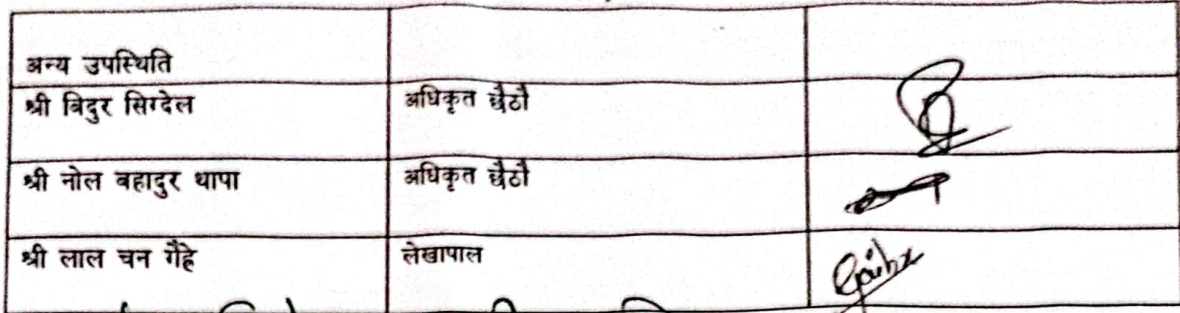 अन्य उपस्थिति
श्री बिदुर सिग्देल अधिकृत छैठौ
श्री नोल बहादुर थापा अधिकृत छैठौ
श्री लाल चन गैह्रे लेखापाल